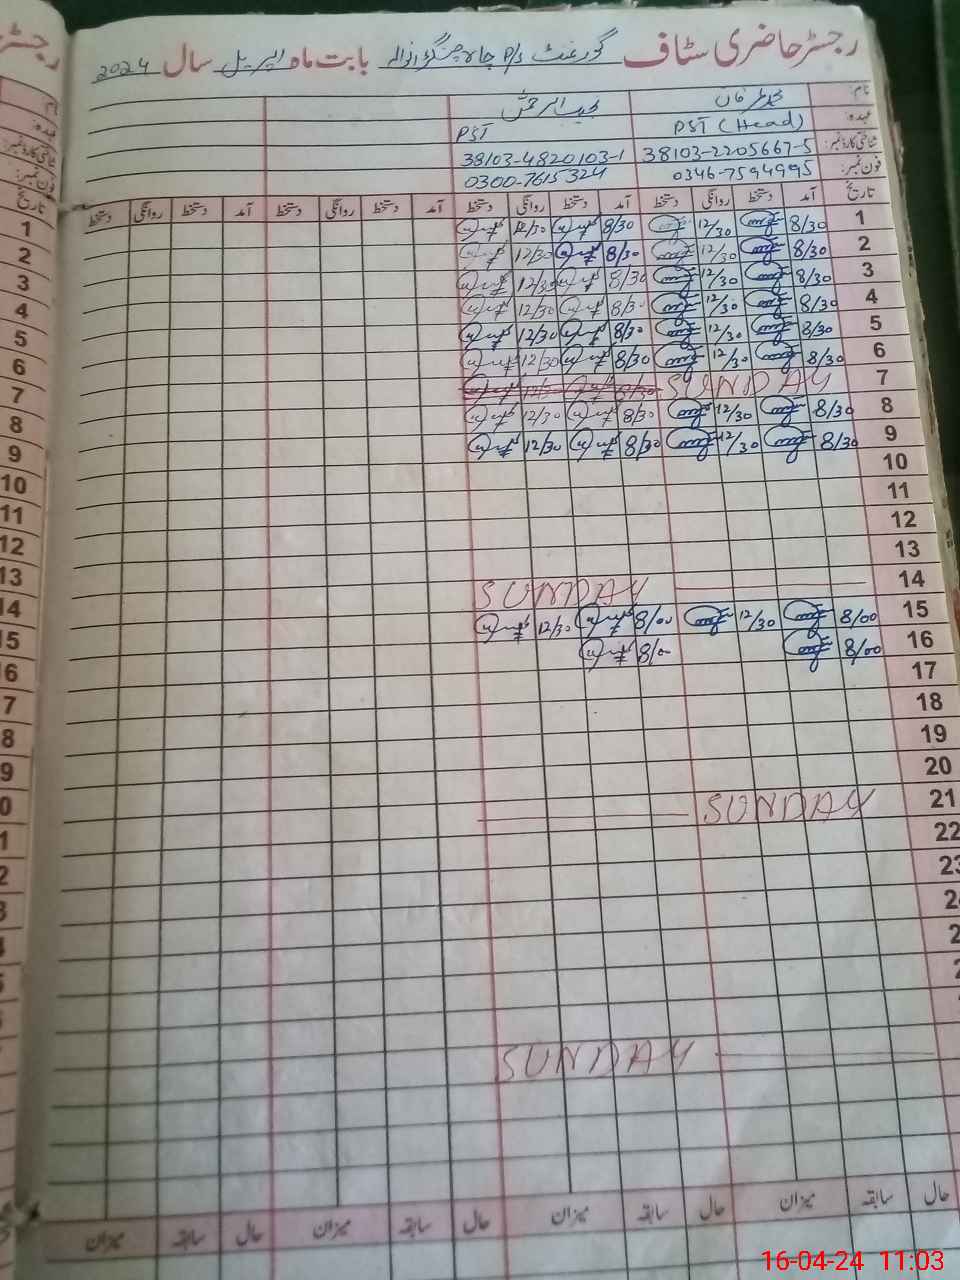 رجسٹر حاضری سٹاف گورنمنٹ P/s چاہ بابت ماہ اپریل سال 2024
نام:
عہدہ: PST (Head) PST
شناختی کارڈ نمبر: 38103-2205667-5 38103-4820103-1
فون نمبر: 0346-7594995 0300-7615324
تاریخ آمد دستخط روانگی دستخط آمد دستخط روانگی دستخط آمد دستخط روانگی دستخط آمد دستخط روانگی دستخط
1 8/30 12/30 8/30 12/30
2 8/30 12/30 8/30 12/30
3 8/30 12/30 8/30 12/30
4 8/30 12/30 8/30 12/30
5 8/30 12/30 8/30 12/30
6 8/30 12/30 8/30 12/30
7 SUNDAY
8 8/30 12/30 8/30 12/30
9 8/30 12/30 8/30 12/30
10
11
12
13
14 SUNDAY
15 8/00 12/30 8/00 12/30
16 8/00 8/00
17
18
19
20
21 SUNDAY
22
23
SUNDAY
حال سابقہ میزان حال سابقہ میزان حال سابقہ میزان حال سابقہ میزان
16-04-24 11:03